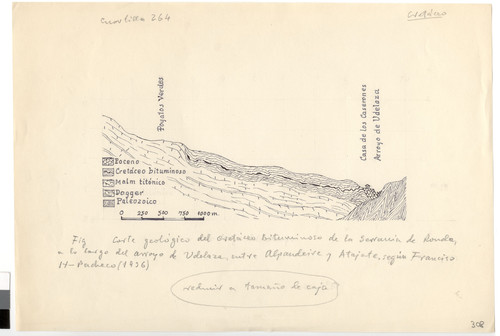 Cuartilla 264
Cretáceo
Poyatos Verdes
Casa de los Caserones
Arroyo de Udelaza
Eoceno
Cretáceo bituminoso
Malm titónico
Dogger
Paleozoico
0 250 500 750 1000 m.
Fig Corte geológico del cretáceo bituminoso de la Serranía de Ronda,
a lo largo del arroyo de Udelaza, entre Alpandeire y Atajate, según Francisco
H-Pacheco (1936)
reducir a tamaño de caja
308